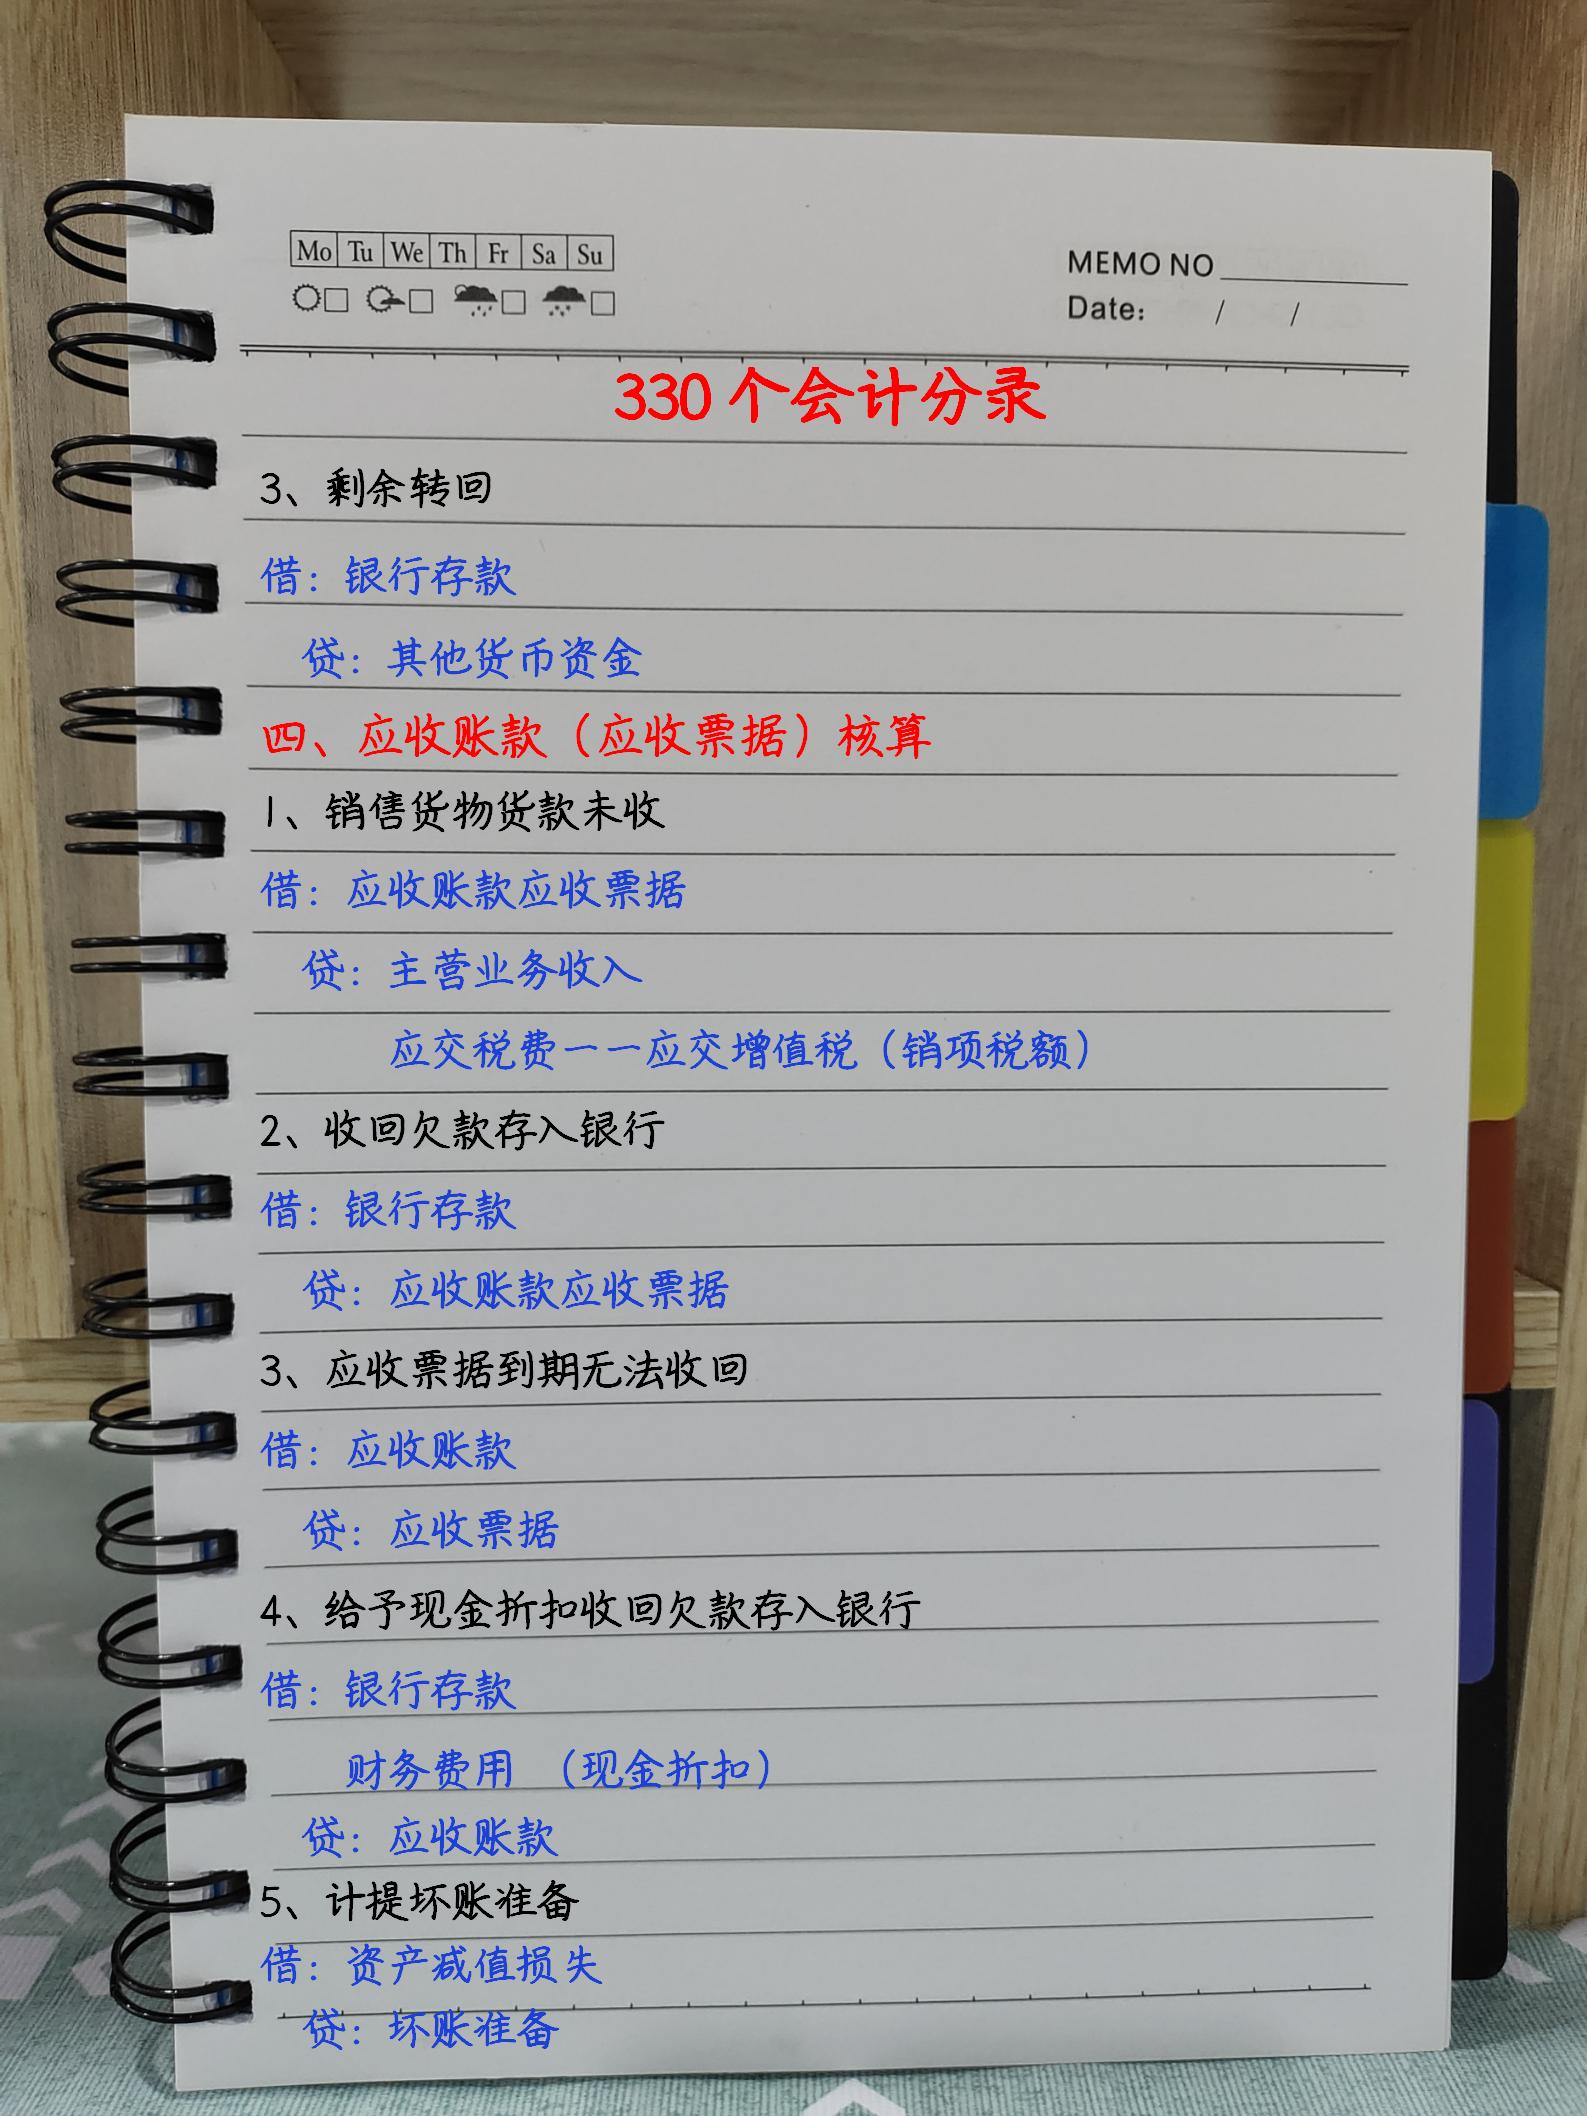 Mo Tu We Th Fr Sa Su
MEMO NO
Date: / /
330个会计分录
3、剩余转回
借：银行存款
贷：其他货币资金
四、应收账款（应收票据）核算
1、销售货物货款未收
借：应收账款应收票据
贷：主营业务收入
应交税费——应交增值税（销项税额）
2、收回欠款存入银行
借：银行存款
贷：应收账款应收票据
3、应收票据到期无法收回
借：应收账款
贷：应收票据
4、给予现金折扣收回欠款存入银行
借：银行存款
财务费用 （现金折扣）
贷：应收账款
5、计提坏账准备
借：资产减值损失
贷：坏账准备